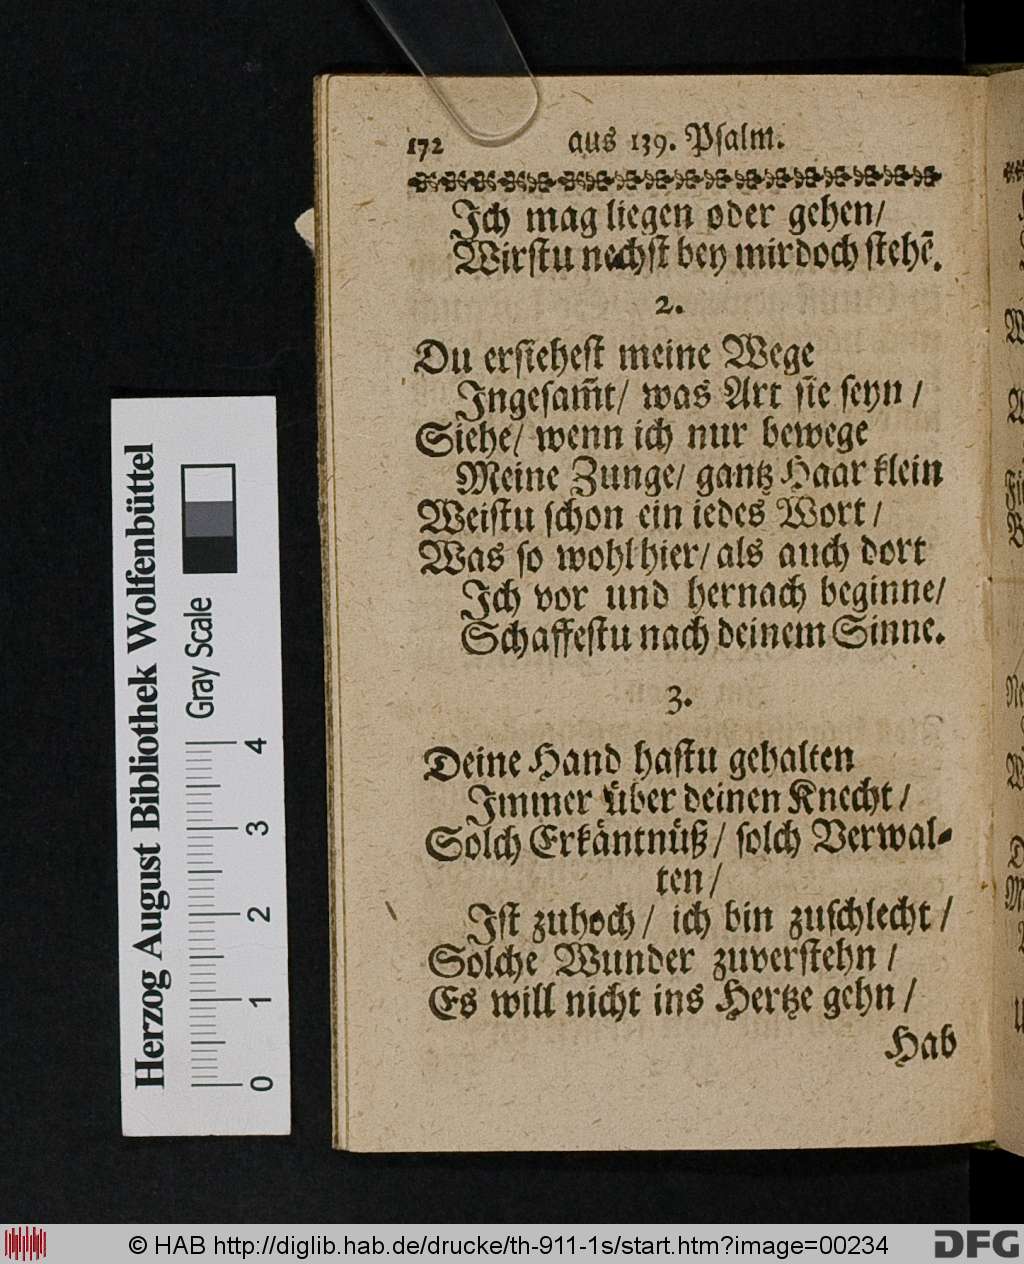 172 aus 139. Psalm.
Ich mag liegen oder gehen/
Wirstu nechst bey mir doch stehē.
2.
Du ersiehest meine Wege
Ingesam̄t/ was Art sie seyn /
Siehe/ wenn ich nur bewege
Meine Zunge/ gantz Haar klein
Weistu schon ein iedes Wort /
Was so wohl hier/ als auch dort
Ich vor und hernach beginne/
Schaffestu nach deinem Sinne.
3.
Deine Hand hastu gehalten
Immer über deinen Knecht /
Solch Erkäntnüß / solch Verwal-
ten /
Ist zuhoch / ich bin zuschlecht /
Solche Wunder zuverstehn /
Es will nicht ins Hertze gehn /
Hab
Herzog August Bibliothek Wolfenbüttel
Gray Scale
0 1 2 3 4
© HAB http://diglib.hab.de/drucke/th-911-1s/start.htm?image=00234
DFG